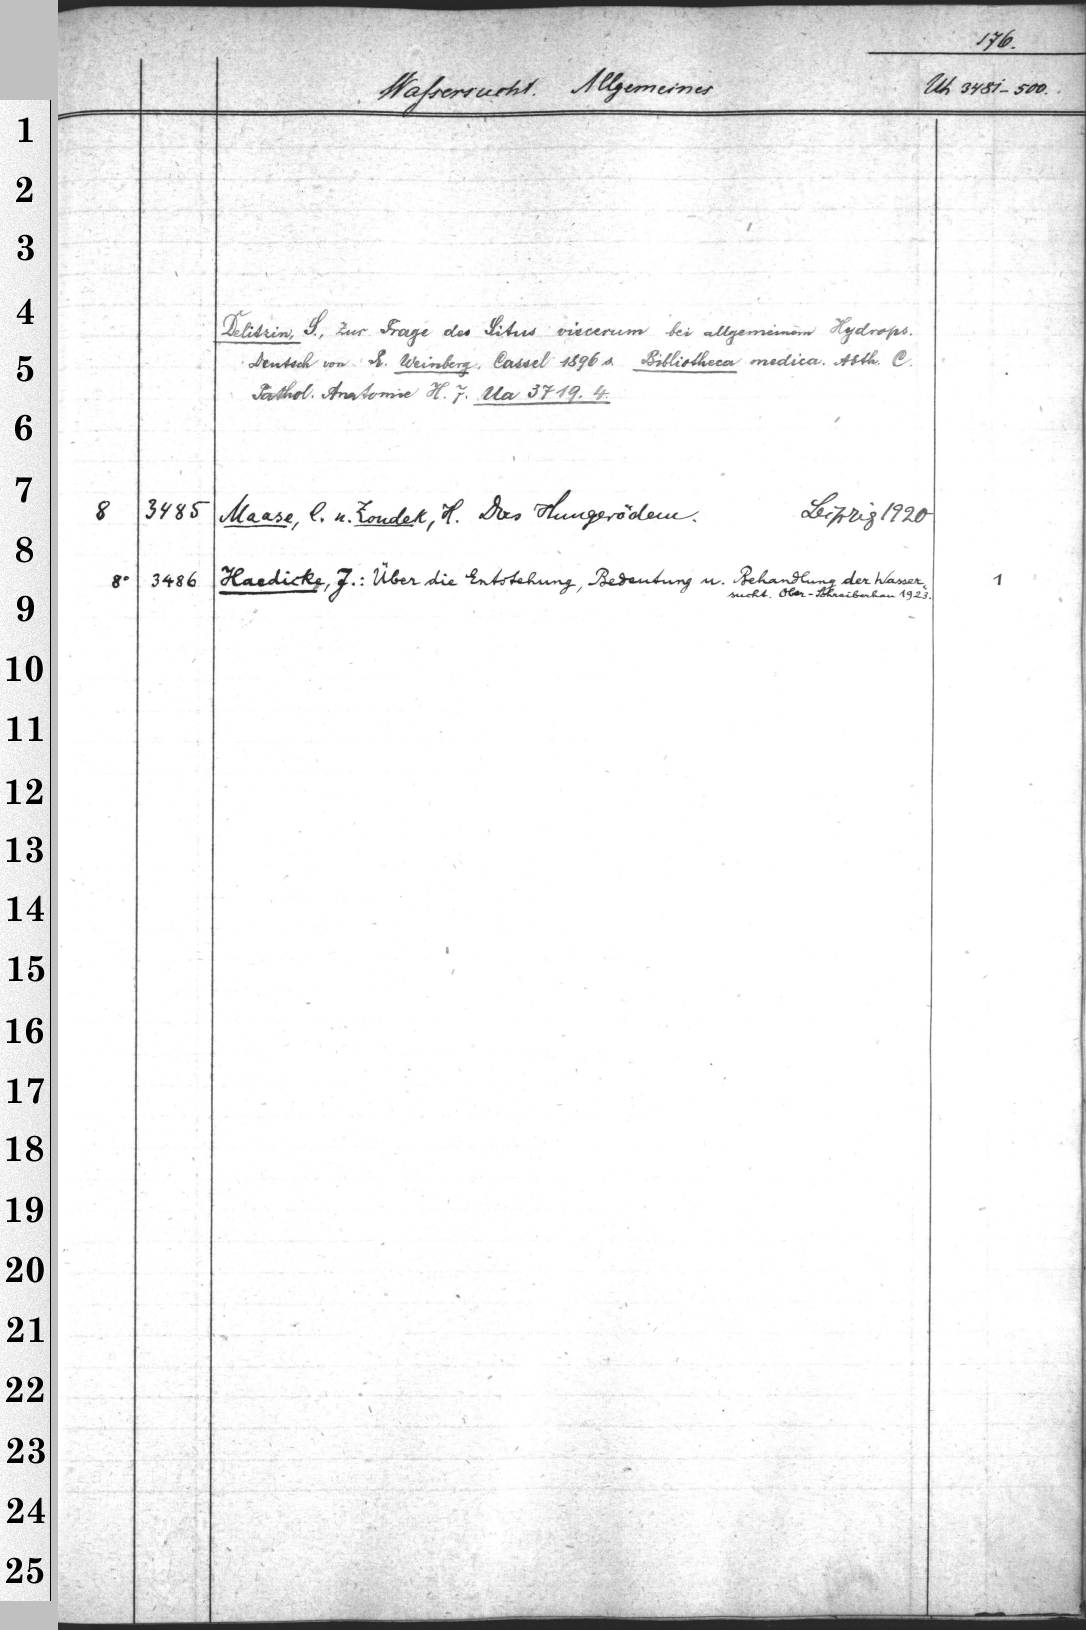 176.
Wassersucht. Allgemeines
Uh 3481-500.
Delitzin, S., Zur Frage des Situs viscerum bei allgemeinem Hydrops.
Deutsch von E. Weinberg. Cassel 1896 s. Bibliotheca medica. Abth. C.
Pathol. Anatomie H. 7. Ua 3719. 4.
8 3485 Maase, C. u. Zondek, H. Das Hungerödem. Leipzig 1920
8° 3486 Haedicke, J.: Über die Entstehung, Bedeutung u. Behandlung der Wasser- 1
sucht. Ober-Schreiberhau 1923.
1
2
3
4
5
6
7
8
9
10
11
12
13
14
15
16
17
18
19
20
21
22
23
24
25